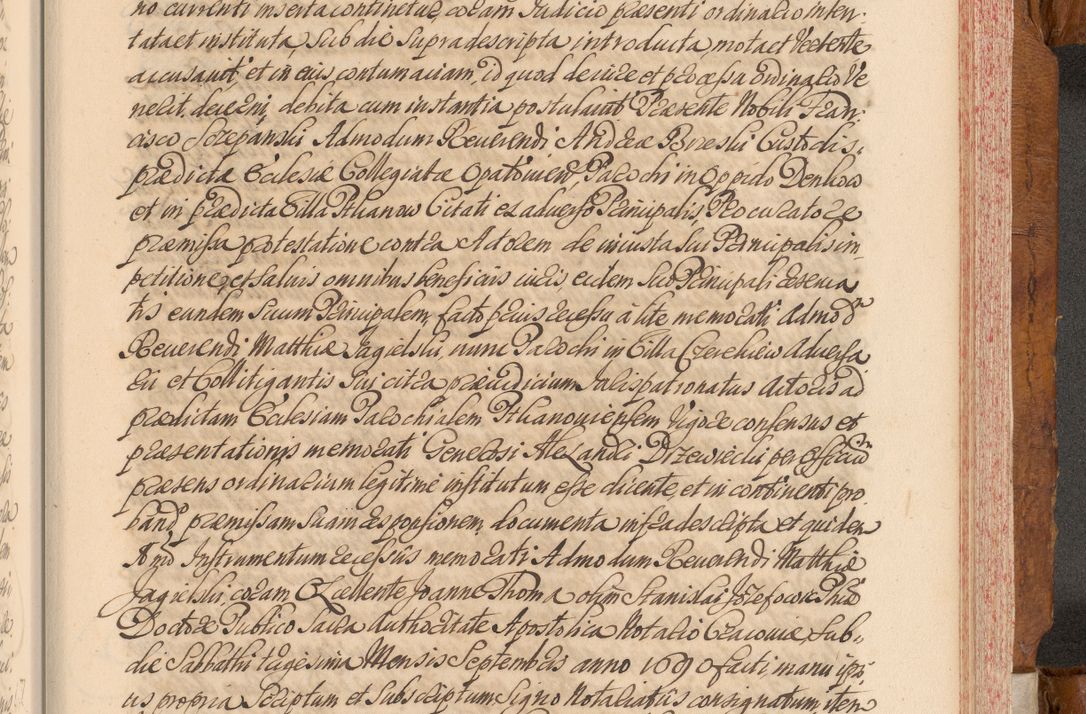 no currenti inserta continetur, coram Judicio præsenti ordinario inten-
tata et instituta, Sub die Supradescripta introducta, mota et Vertente
accusavit, et in eius contumaciam, id quod de iure et processu ordinario Ve
nerit decerni, debita cum instantia postulavit Præsente Nobili Fran-
cisco Szczepanski Admodum Reverendi Andreæ Borzeski Custodis,
prædictæ Ecclesiæ Collegiatæ Opatovien, Parochi in Oppido Denkow
et in prædicta Villa Ptkanow Citati ex adverso Principalis, Procuratore
præmissa protestatione contra Actorem de iniusta sui Principalis im-
petitione, et salvis omnibus beneficiis iuris, eidem suo Principali reserva
tis eundem Suum Principalem, facto prius recessu à lite memorati Admod
Reverendi Matthiæ Jagielski, nunc Parochi in Villa Czerekiew Adversa
rii et Collitigantis Sui citra præiudicium Juris patronatus Actoris ad
prædictam Ecclesiam Parochialem Ptkanoviensem Vigore consensus et
præsentationis memorati Generosi Alexandri Drzewiecki per officium
præsens ordinarium legitimè institutum esse dicente, et in continenti pro
band præmissam Suam responsionem, documenta infradescripta et quidem
Imo Instrumentum recessus memorati Admodum Reverendi Matthiæ
Jagielski, coram Excellente Joanne Thoma olim Stanislai Jozefowic Phiæ
Doctore Publico Sacra Authoritate Apostolica Notario Cracoviæ Sub-
die Sabbathi trigesima Mensis Septembris anno 1690 facti, manu ipsi-
us propria Scriptum et Subscriptum, Signo Notariatus consignatum, item